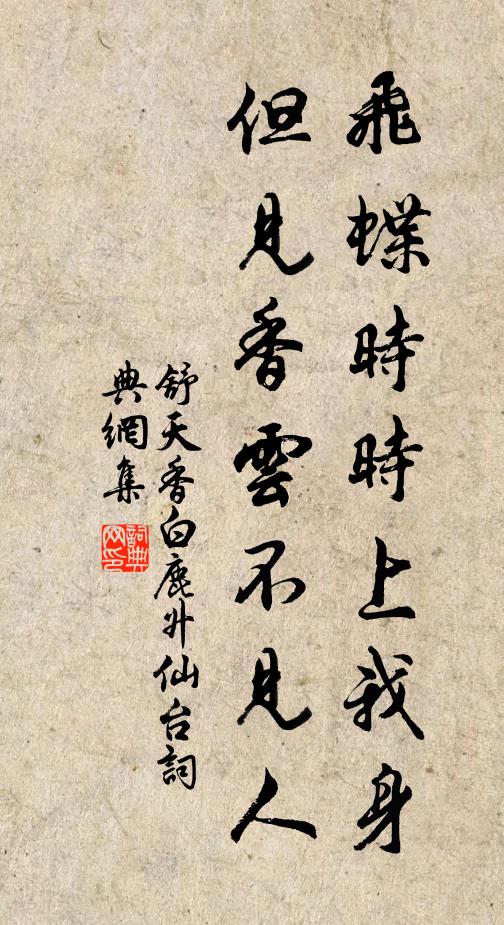 飛蝶時時上我身
但見香雲不見人
舒天香白鹿升仙台詞
典網集
詞典
网印